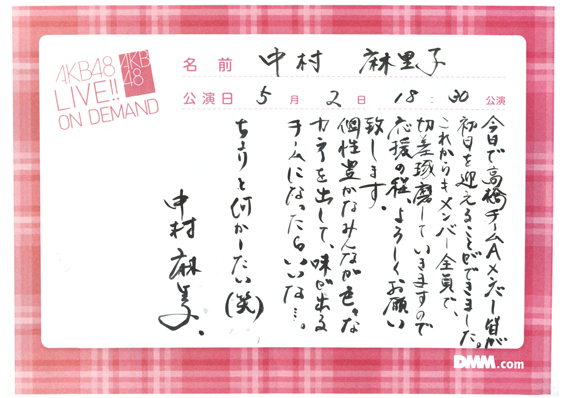 AKB48
LIVE!!
ON DEMAND
AKB
48
名前 中村 麻里子
公演日 5月2日 18:30 公演
今日で高橋チームAメンバー皆が
初日を迎えることができました。
これからもメンバー全員で、
切差琢磨していきますので
応援の程、よろしくお願い
致します。
個性豊かなみんなが色々な
カラーを出して、味が出る
チームになったらいいな…。
ちょりと何かしたい(笑)
中村麻里子.
DMM.com